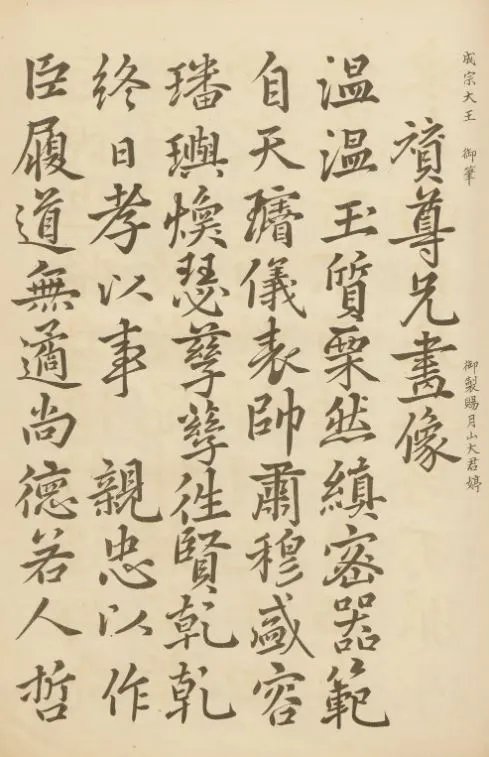 成宗大王 御筆 御製賜月山大君婷
賛尊兄畫像
温温玉質栗然縝密器範
自天璿儀表帥肅穆盛容
璠璵煥瑟孳孳徃賢乾乾
終日孝以事 親忠以作
臣履道無適尚德若人哲